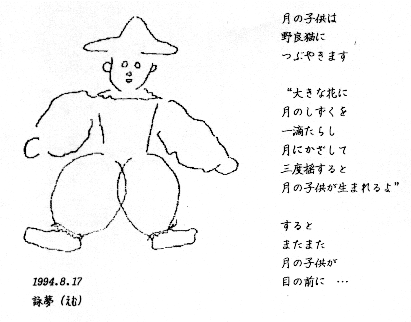 月の子供は
野良猫に
つぶやきます
“大きな花に
月のしずくを
一滴たらし
月にかざして
三度揺すると
月の子供が生まれるよ”
すると
またまた
月の子供が
目の前に …
1994.8.17
詠夢（えむ）